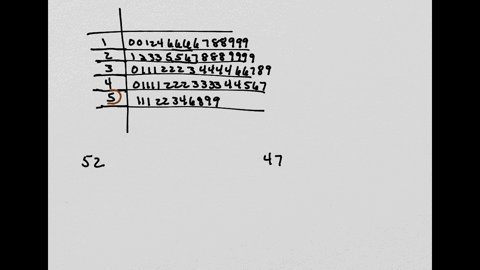 1 0 0 1 2 4 6 6 6 6 7 8 8 9 9 9
2 1 2 3 3 5 5 6 7 8 8 8 9 9 9 9
3 0 1 1 1 2 2 2 3 4 4 4 4 6 6 7 8 9
4 0 1 1 1 1 2 2 2 3 3 3 3 4 4 5 6 7
5 1 1 1 2 2 3 4 6 8 9 9
52 47